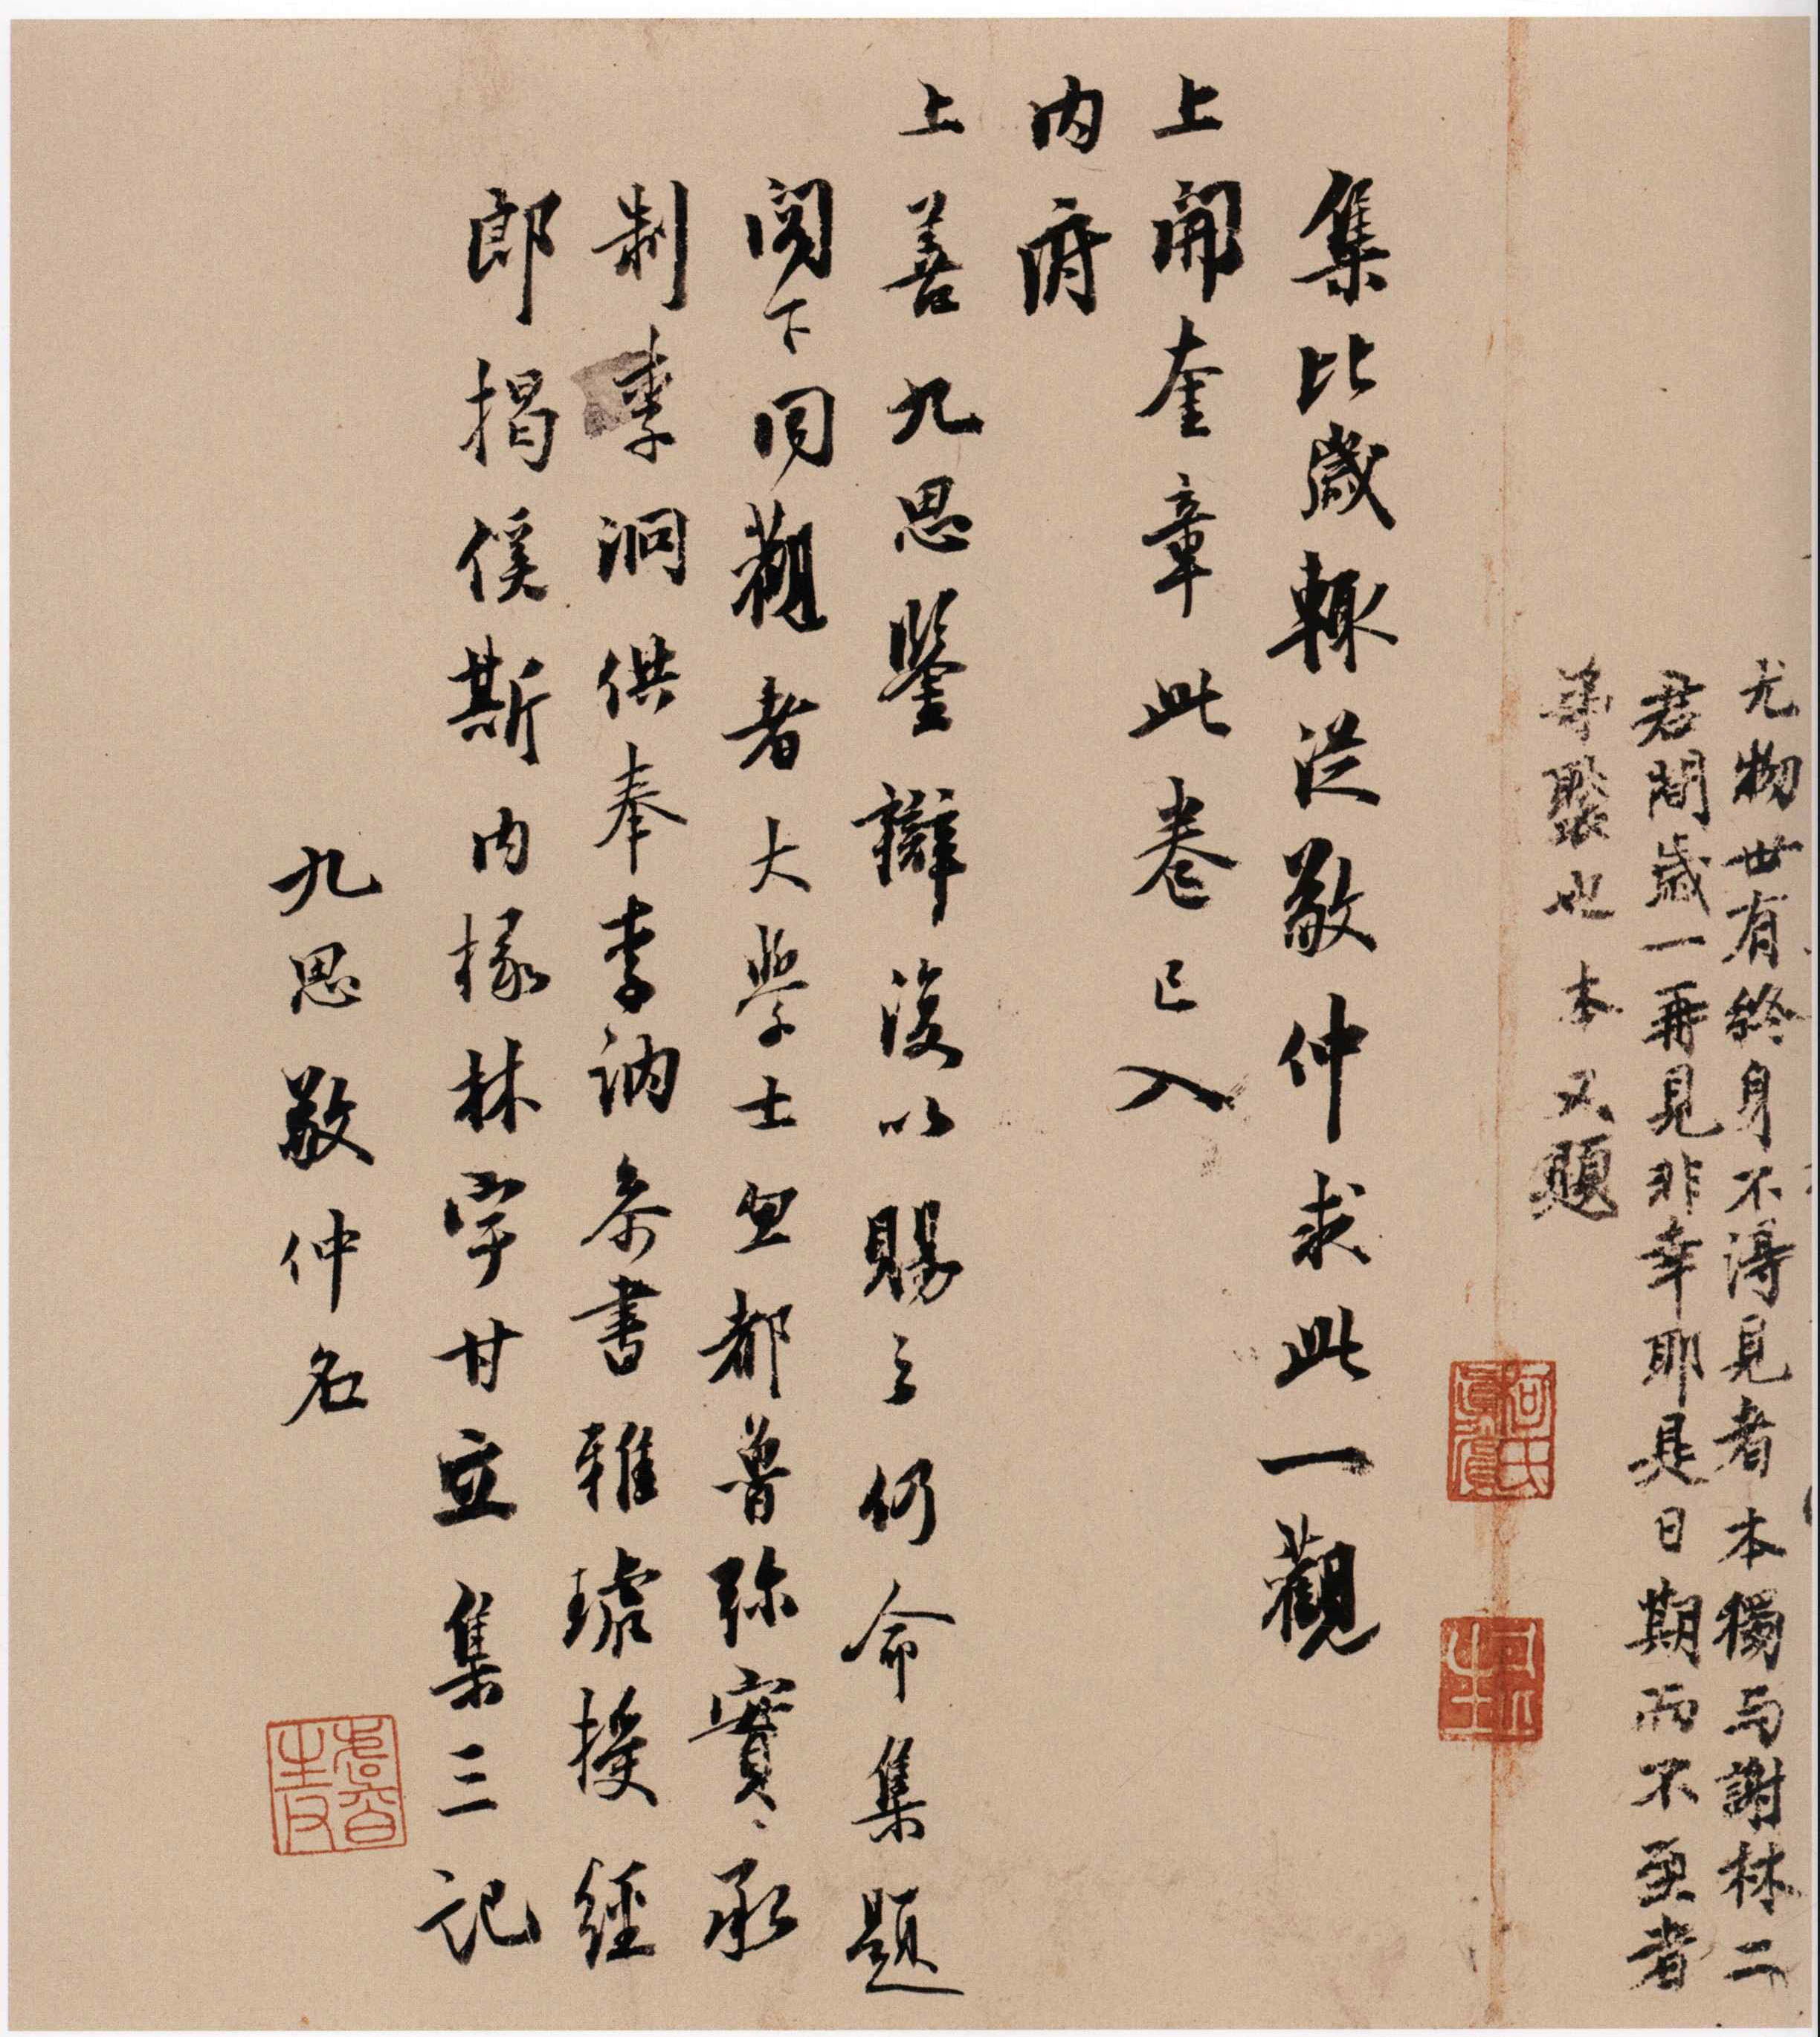 尤物世有終身不得見者本獨与謝林二
君間歲一再見非幸耶是日期而不至者
弟褧也本又題
柯氏真賞
集比歲輒從敬仲求此一觀
上開奎章此卷已入
内府
上善九思鑒辯復以賜之仍命集題
閣下同觀者大學士忽都魯弥實承
制李泂供奉李訥參書雅琥授經
郎揭傒斯内掾林宇甘立集三記
九思敬仲名